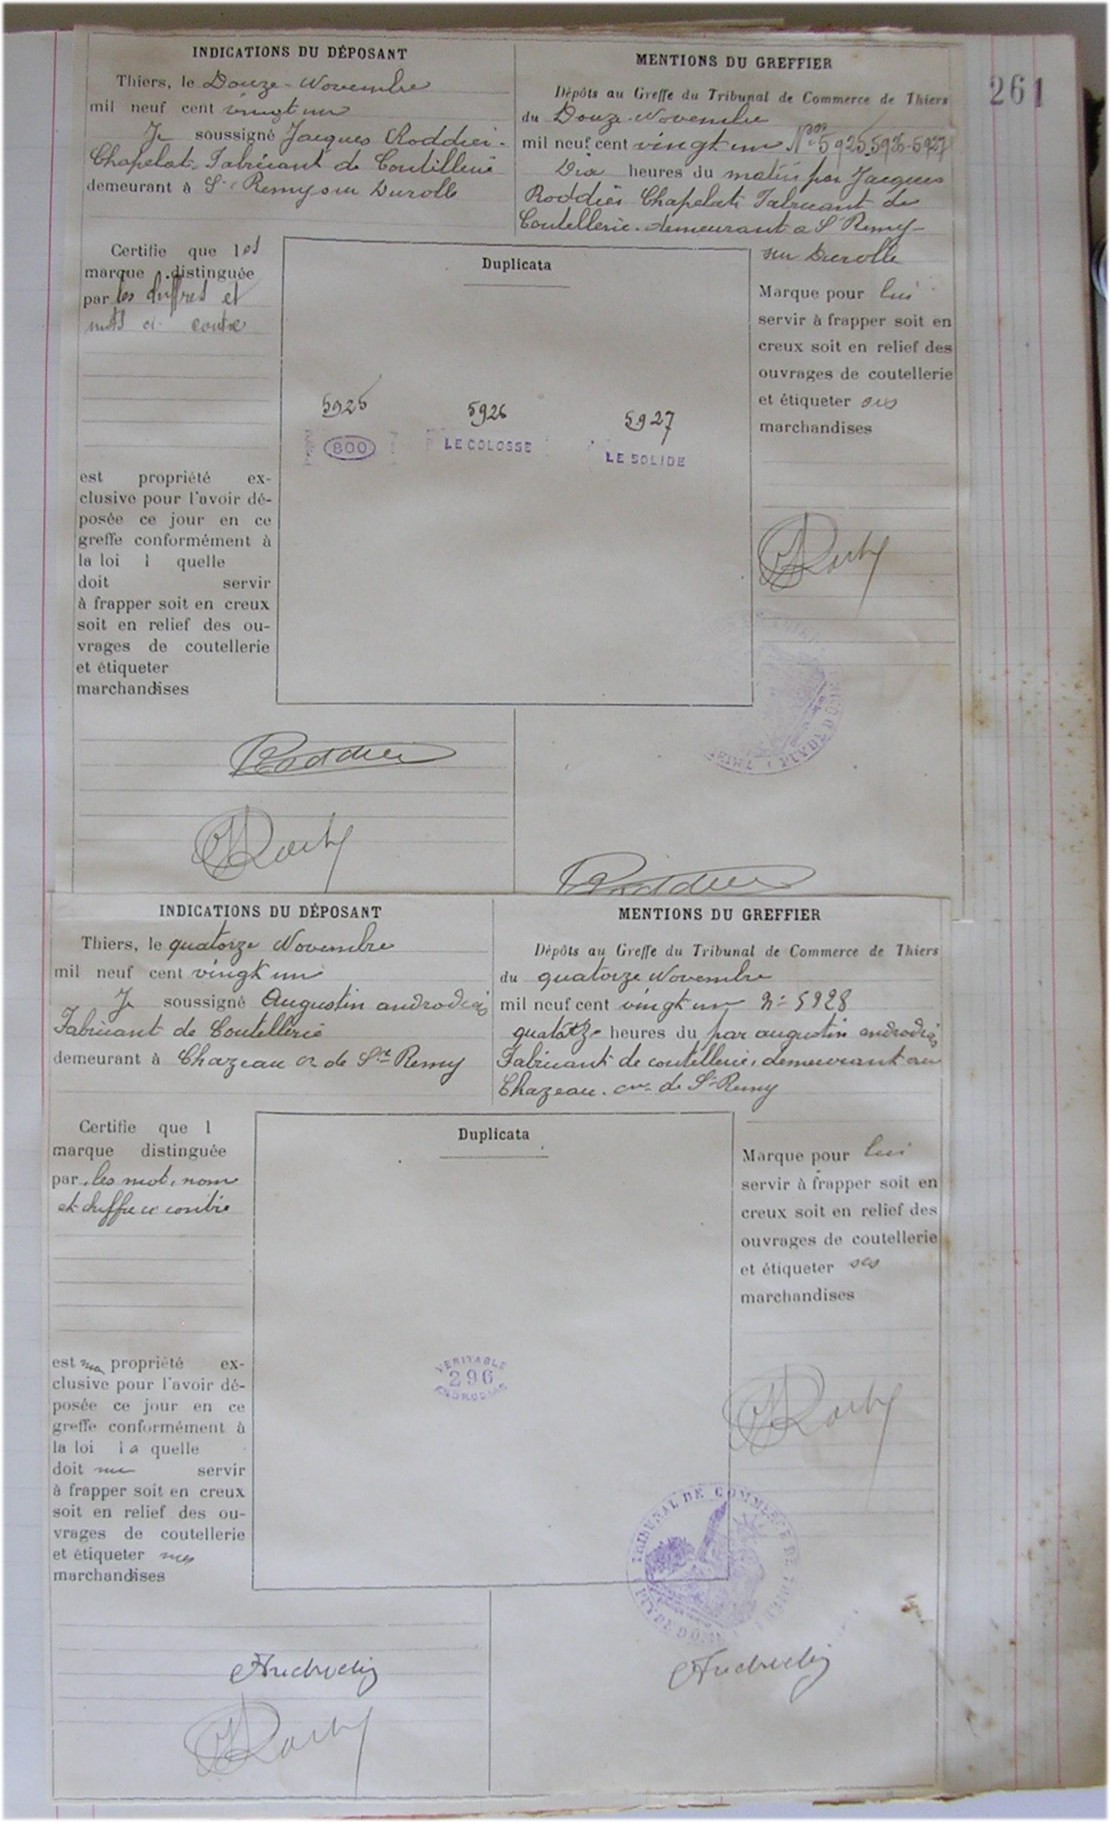 261
INDICATIONS DU DÉPOSANT
Thiers, le Douze Novembre
mil neuf cent vingt un
Je soussigné Jacques Roddier-
Chapelat Fabricant de Coutellerie
demeurant à St Remy sur Durolle
MENTIONS DU GREFFIER
Dépôts au Greffe du Tribunal de Commerce de Thiers
du Douze Novembre
mil neuf cent vingt un Nos 5925.5926-5927
Dix heures du matin par Jacques
Roddier Chapelat Fabricant de
Coutellerie demeurant a St Remy
sur Durolle
Certifie que les
marque distinguée
par les chiffres et
mots ci contre
est propriété ex-
clusive pour l'avoir dé-
posée ce jour en ce
greffe conformément à
la loi l quelle
doit servir
à frapper soit en creux
soit en relief des ou-
vrages de coutellerie
et étiqueter
marchandises
Duplicata
5925 5926 5927
800 LE COLOSSE LE SOLIDE
Marque pour lui
servir à frapper soit en
creux soit en relief des
ouvrages de coutellerie
et étiqueter ses
marchandises
Roddier
Roddier
INDICATIONS DU DÉPOSANT
Thiers, le quatorze Novembre
mil neuf cent vingt un
Je soussigné Augustin androdias
Fabricant de Coutellerie
demeurant à Chazeau cne de St Remy
MENTIONS DU GREFFIER
Dépôts au Greffe du Tribunal de Commerce de Thiers
du quatorze Novembre
mil neuf cent vingt un No 5928
quatorze heures du par augustin androdias
Fabricant de coutellerie, demeurant au
Chazeau. cne de St Remy
Certifie que l
marque distinguée
par les mot, nom
et chiffre ci contre
est ma propriété ex-
clusive pour l'avoir dé-
posée ce jour en ce
greffe conformément à
la loi la quelle
doit me servir
à frapper soit en creux
soit en relief des ou-
vrages de coutellerie
et étiqueter mes
marchandises
Duplicata
VERITABLE
296
ANDRODIAS
Marque pour lui
servir à frapper soit en
creux soit en relief des
ouvrages de coutellerie
et étiqueter ses
marchandises
TRIBUNAL DE COMMERCE DE THIERS
PUY DE DOME